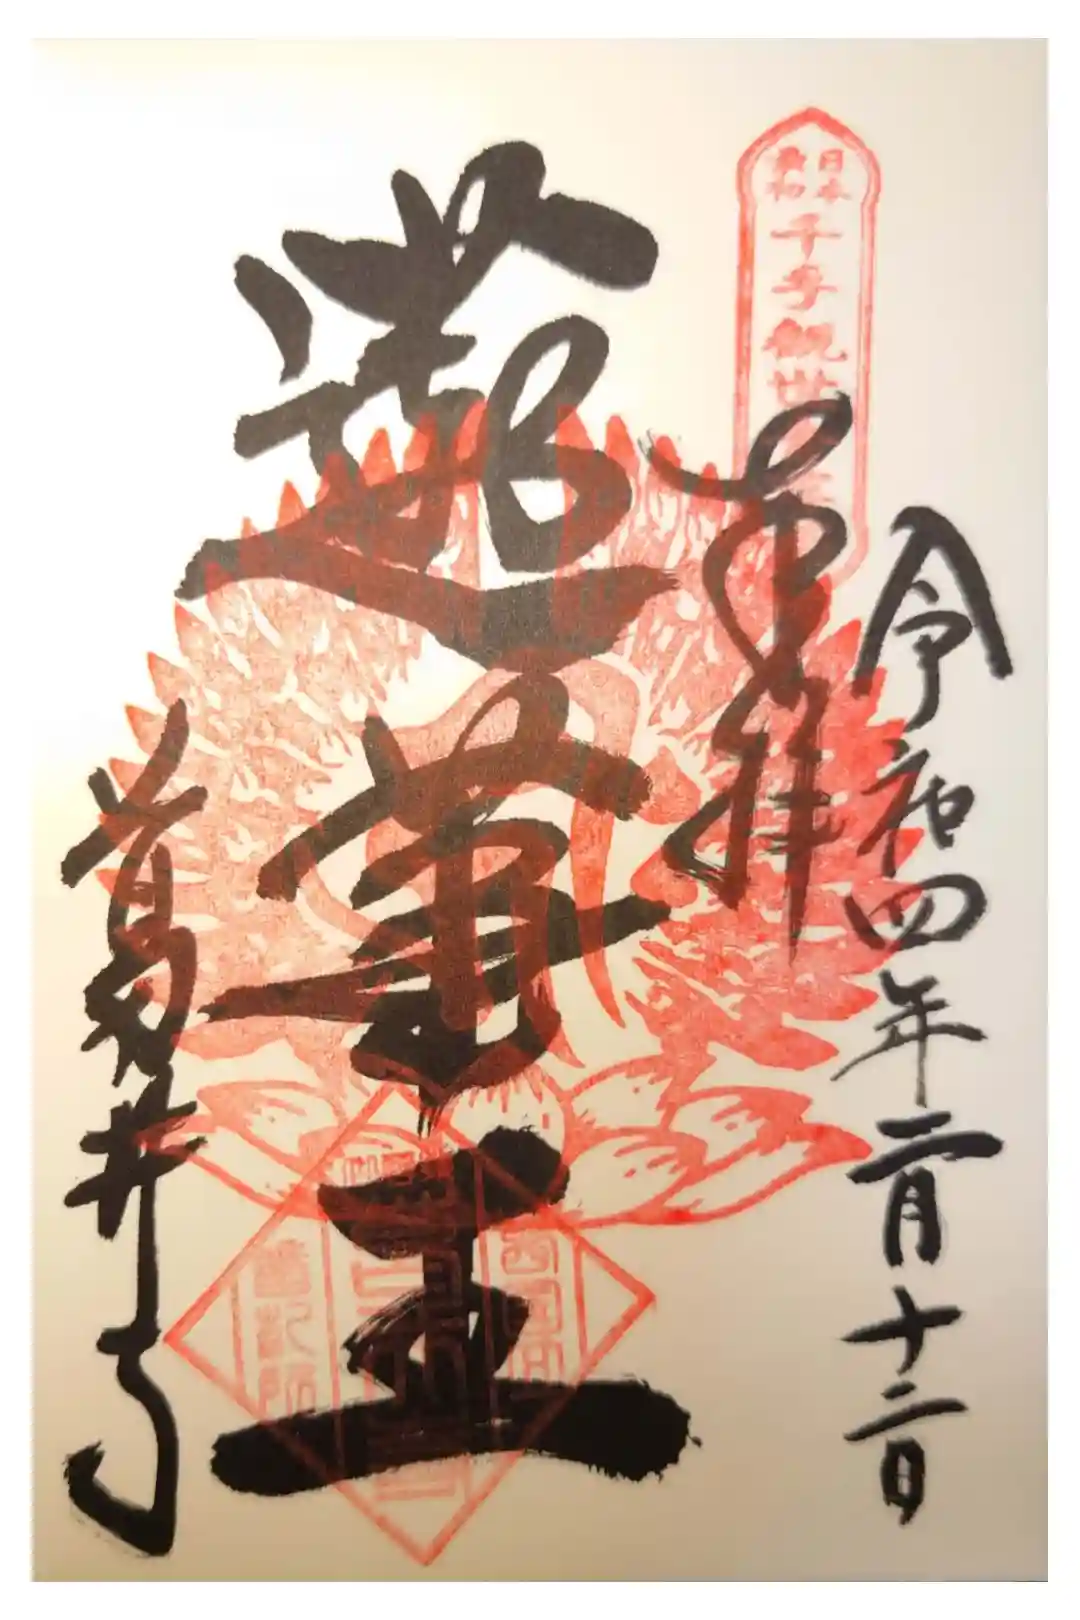 日本
最初
千手観世
令和四年二月十二日
奉拝
蓮華王
葛井寺